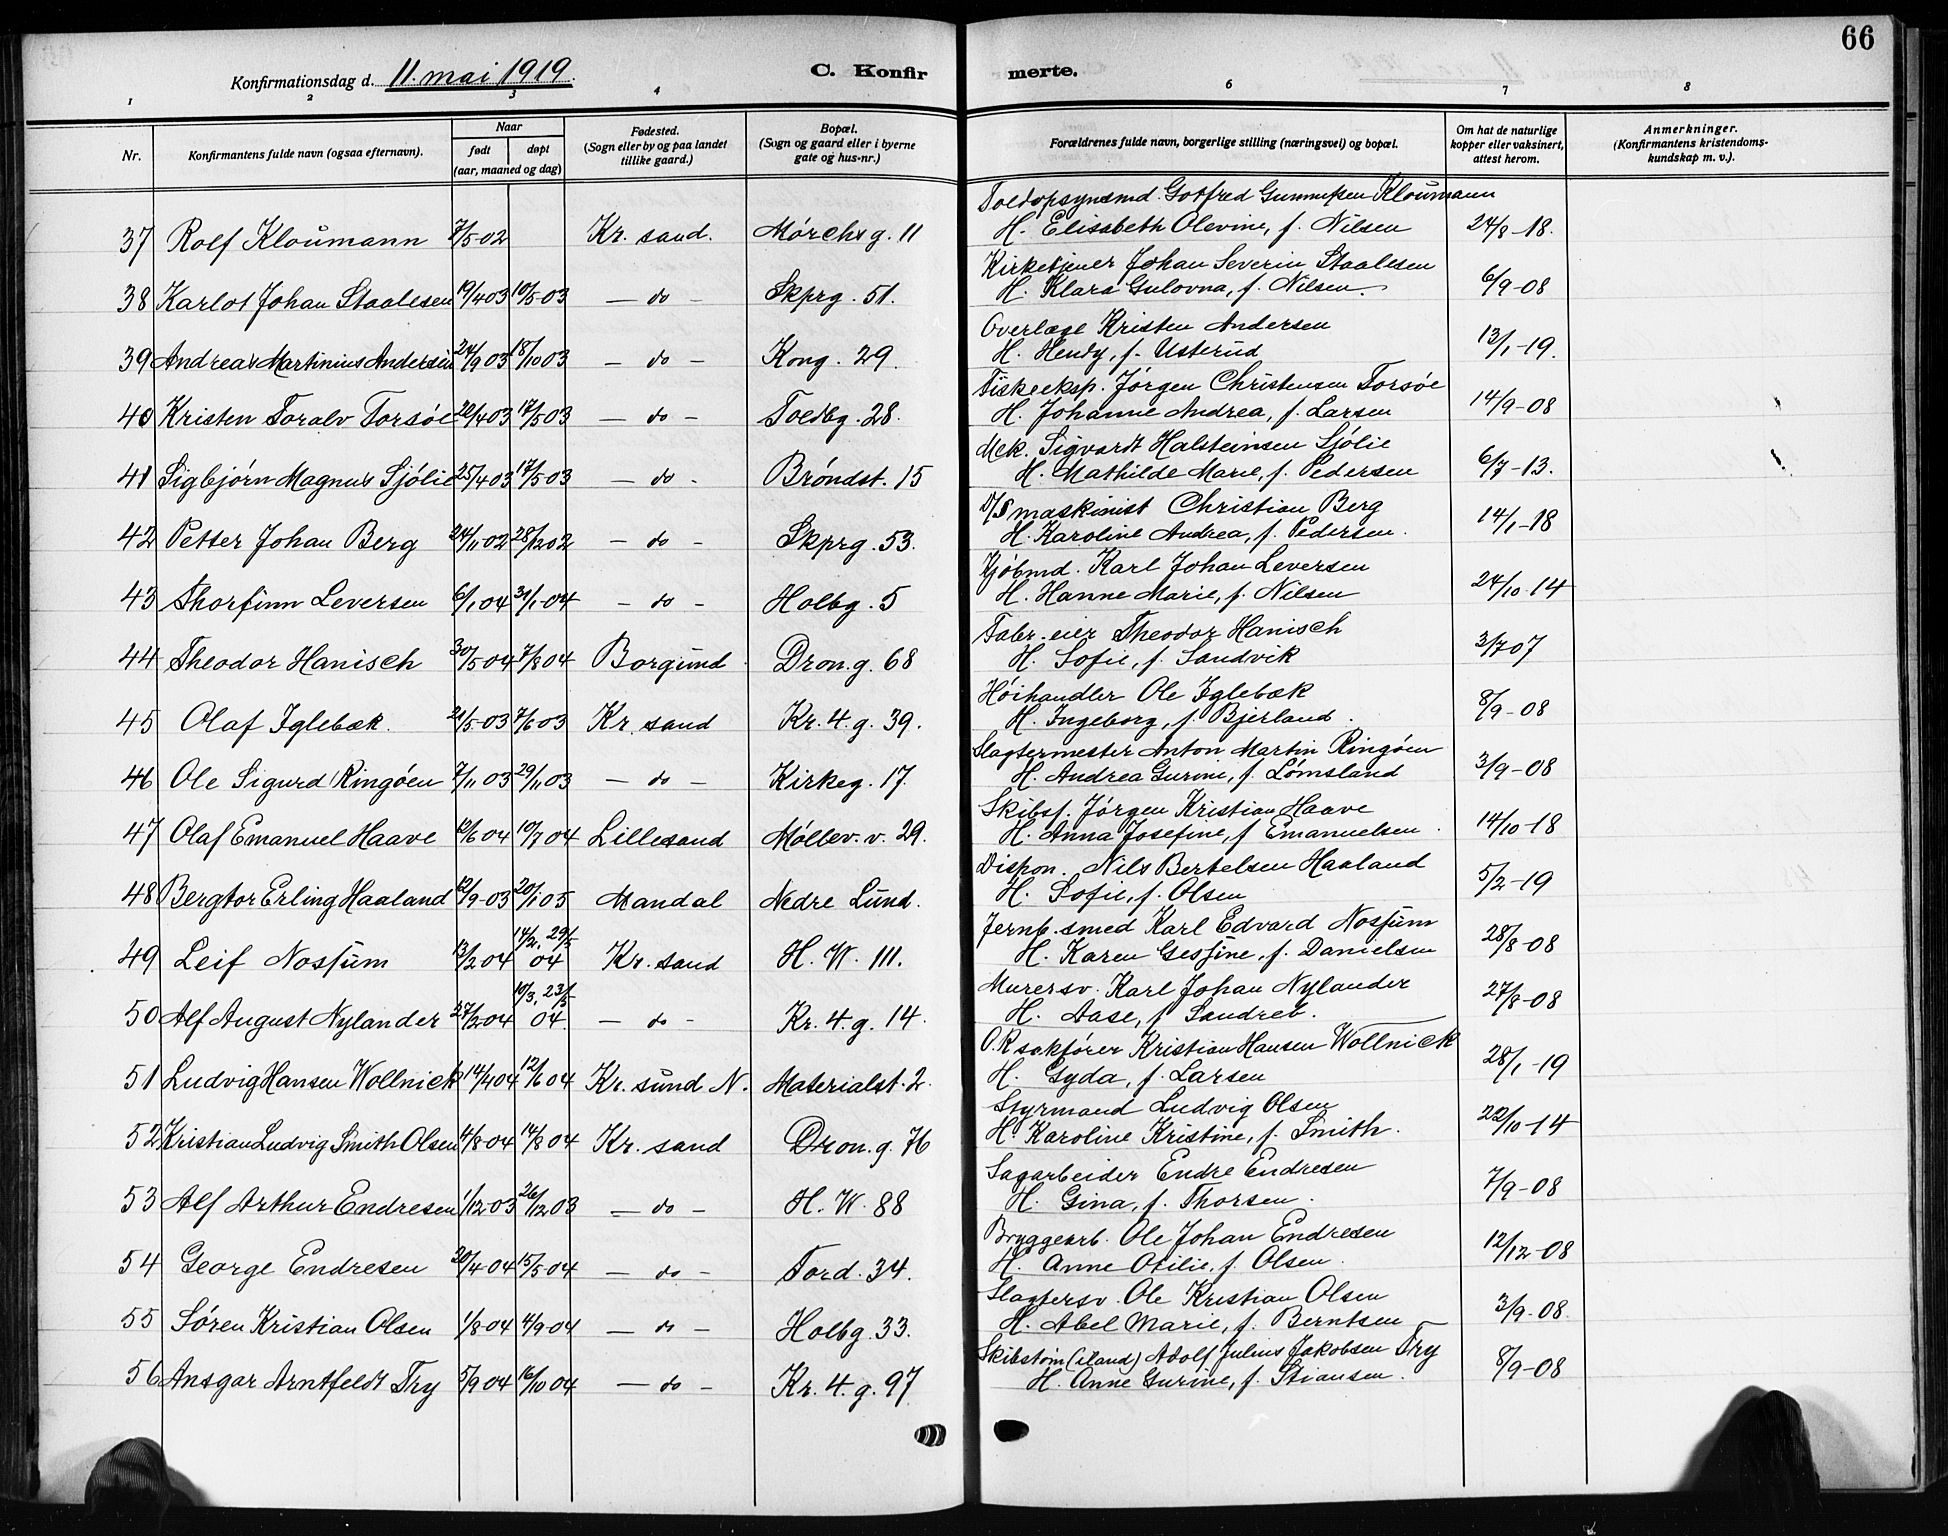 66
Konfirmationsdag d. 11. mai 1919.
C. Konfirmerte.
1 2 3 4 6 7 8
Nr.
Konfirmantens fulde navn (ogsaa efternavn).
Naar
født
døpt
(aar, maaned og dag)
Fødested.
(Sogn eller by og paa landet
tillike gaard.)
Bopæl.
(Sogn og gaard eller i byerne
gate og hus-nr.)
Forældrenes fulde navn, borgerlige stilling (næringsvei) og bopæl.
Om hat de naturlige
kopper eller vaksinert,
attest herom.
Anmerkninger.
(Konfirmantens kristendoms-
kundskap m. v.).
Toldopsynsmd. Gotfred Gunnufsen Kloumann
37 Rolf Kloumann 7/5-02 Kr. sand. Mórchs g. 11 H. Elisabeth Olevine, f. Nilsen 24/8-18.
Kirketjener Johan Severin Staalesen
38 Karlot Johan Staalesen 19/4 03 10/5-03 — do — Skprg. 51. H. Klara Gulovna, f. Nilsen. 6/9-08
Overlæge Kristen Andersen
39 Andreas Martinius Andersen 24/9 03 18/10 03 — do — Kong. 29. H. Hendy, f. Usterud 13/1-19.
Fiskeeksp. Jórgen Christensen Torsóe
40 Kristen Toralv Torsóe 22/4 03 17/5 03 — do — Toldbg. 28. H. Johanne Andrea, f. Larsen 14/9-08
Mek. Sigvardt Halsteinsen Sjólie
41 Sigbjórn Magnus Sjólie 25/4 03 17/5-03 — do - Bróndst. 15 H. Mathilde Marie, f. Pedersen 6/7-13.
D/S maskinist Christian Berg
42 Petter Johan Berg 24/11 02 28/12 02 — do — Skprg. 53. H. Karoline Andrea, f. Pedersen. 14/1-18
Kjóbmd. Karl Johan Leversen
43 Thorfinn Leversen 6/1 04 31/1-04 — do — Holbg. 5 H. Hanne Marie, f. Nilsen 24/10-14
Fabr. eier Theodor Hanisch
44 Theodor Hanisch 30/5 04 7/8 04 Borgund Dron. g. 68 H. Sofie, f. Sandvik 3/7 07
Hóihandler Ole Iglebæk
45 Olaf Iglebæk. 21/5-03 7/6 03 Kr. sand Kr. 4. g. 39. H. Ingeborg, f. Bjerland. 8/9-08
Slagtermester Anton Martin Ringóen
46 Ole Sigurd Ringóen 7/11 03 29/11 03 — do — Kirkeg. 17. H. Andrea Gurine, f. Lómsland 3/9-08
Skibsf. Jórgen Kristian Haave
47 Olaf Emanuel Haave 12/6 04 10/7 04 Lillesand Móllev. v. 29. H. Anna Josefine, f. Emanuelsen. 14/10-18
Dispon. Nils Bertelsen Haaland
48 Bergtor Erling Haaland 12/9-03 20/1 05 Mandal Nedre Lund. H. Sofie, f. Olsen 5/2-19
Jernb. smed Karl Edvard Nosfum
49 Leif Nosfum 13/2 04 14/2, 29/5 04 Kr. sand H. W. 111. H. Karen Gesfine, f. Danielsen 28/8-08
Murersv. Karl Johan Nylander
50 Alf August Nylander 27/2 04 10/3, 23/5 04 — do — Kr. 4. g. 14. H. Aase, f. Sandreb. 27/8-08
O.R sakfórer Kristian Hansen Wollnick
51 Ludvig Hansen Wollnick 14/4 04 12/6 04 Kr. sund N. Materialst. 2. H. Gyda, f. Larsen 28/1-19
Styrmand Ludvig Olsen
52 Kristian Ludvig Smith Olsen 4/8 04 14/8 04 Kr. sand Dron. g. 76 H. Karoline Kristine, f. Smith. 22/10-14
Sagarbeider Endre Endresen
53 Alf Arthur Endresen 1/12-03 26/12 03 — do — H. W. 88 H. Gina, f. Thorsen. 7/9-08
Bryggearb. Ole Johan Endresen
54 George Endresen 20/4 04 15/5 04 — do — Tord. 34. H. Anne Otilie, f. Olsen. 12/12-08
Slagtersv. Ole Kristian Olsen
55 Sóren Kristian Olsen 1/8-04 4/9-04 — do — Holbg. 33. H. Abel Marie, f. Berntsen 3/9-08.
Skibstóm (iland) Adolf Julius Jakobsen Try
56 Ansgar Arntfeldt Try 5/9 04 16/10 04 — do — Kr. 4. g. 97 H. Anne Gurine, f. Stiansen. 8/9-08